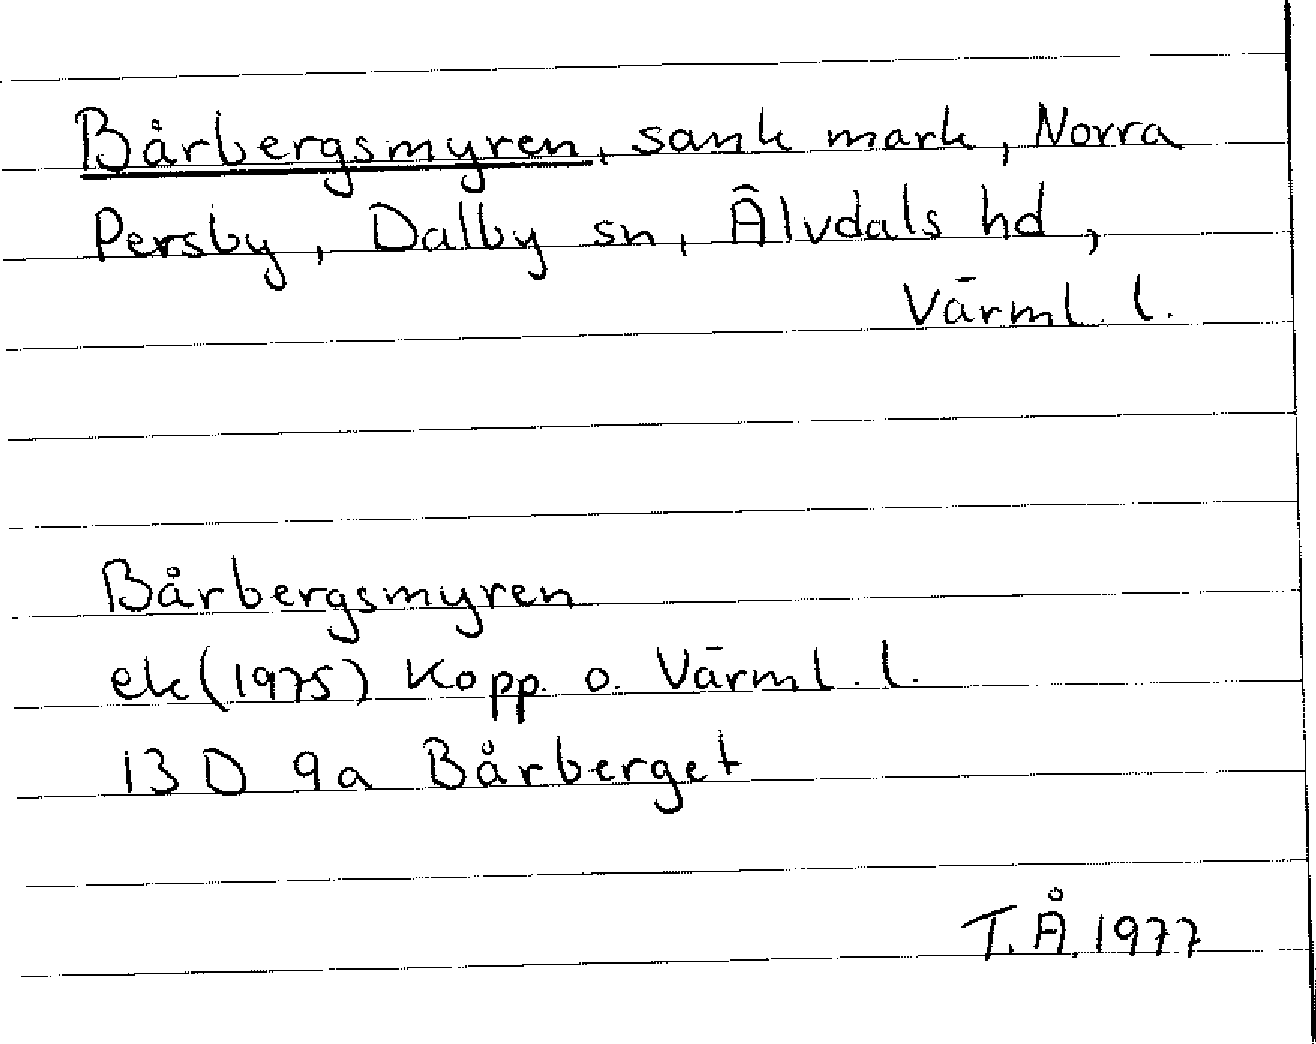 Bårbergsmyren, sank mark, Norra
Persby, Dalby sn, Älvdals hd,
Värml. l.
Bårbergsmyren
ek (1975) Kopp. o. Värml. l.
13 D 9a Bårberget
T.Å. 1977